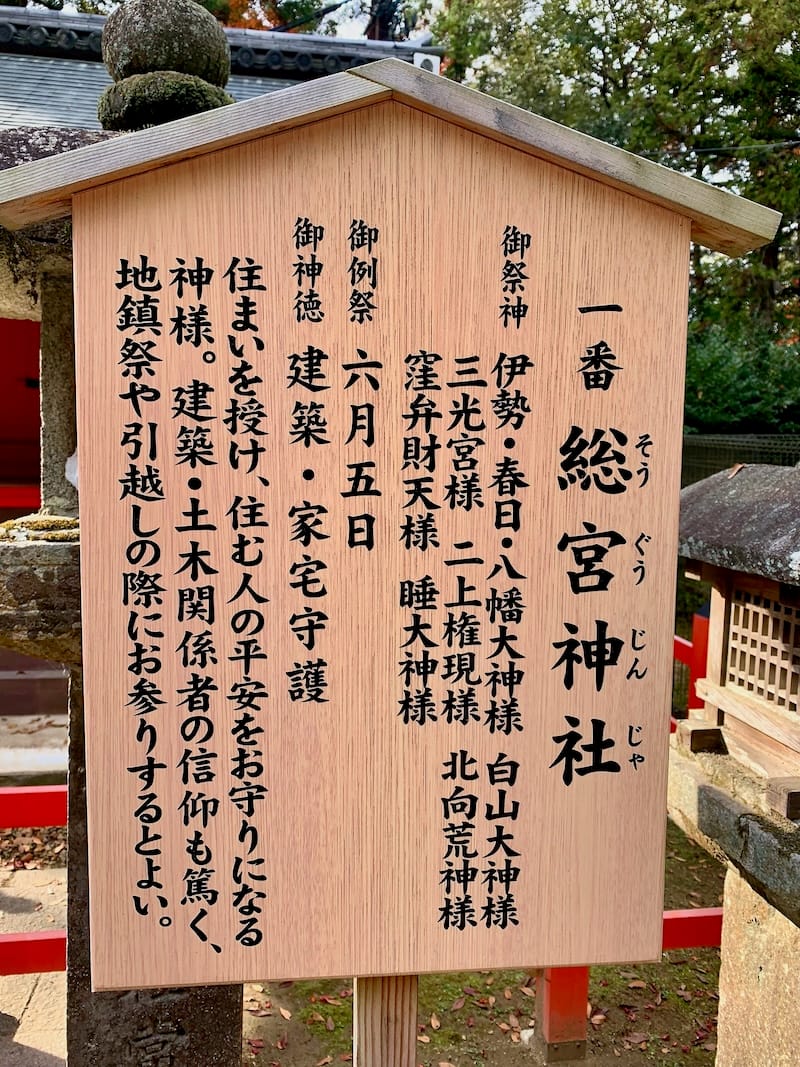 一番 総宮神社
そうぐうじんじゃ
御祭神 伊勢・春日・八幡大神様 白山大神様
三光宮様 二上権現様 北向荒神様
窪弁財天様 睡大神様
御例祭 六月五日
御神徳 建築・家宅守護
住まいを授け、住む人の平安をお守りになる
神様。建築・土木関係者の信仰も篤く、
地鎮祭や引越しの際にお参りするとよい。